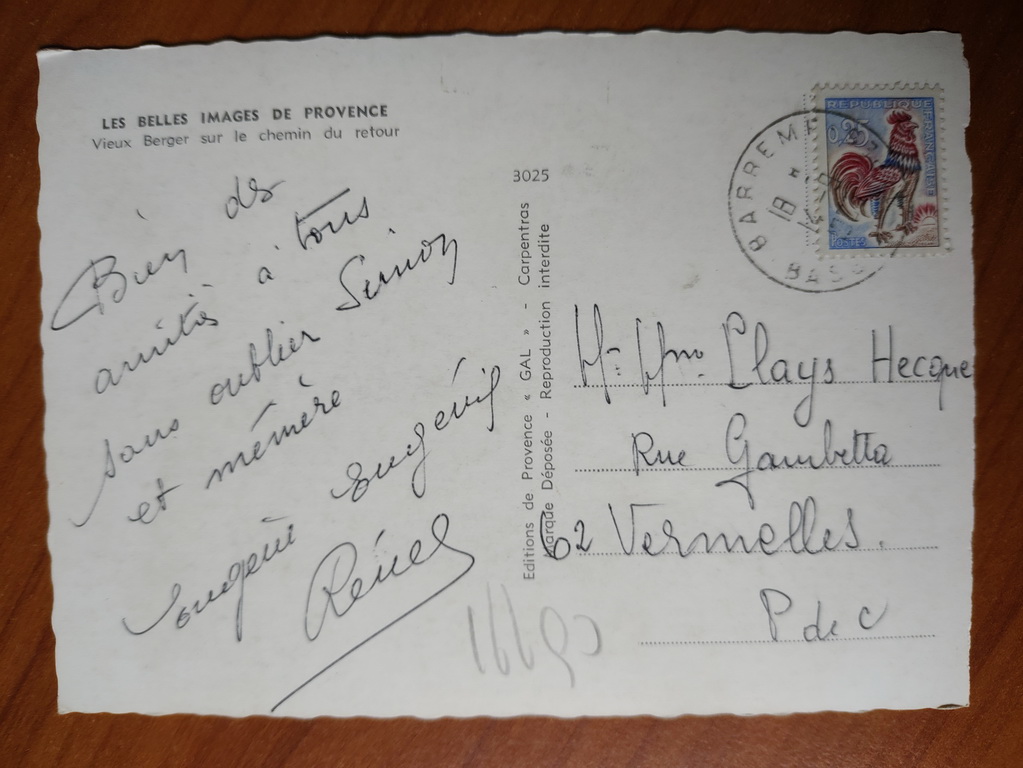 LES BELLES IMAGES DE PROVENCE
Vieux Berger sur le chemin du retour
Bien des
amitiés à tous
sans oublier
et mémère
3025
Editions de Provence « GAL » - Carpentras
Marque Déposée - Reproduction interdite
REPUBLIQUE FRANÇAISE
0,25
POSTES
BARREME
18
BASS
Hecque
Rue Gambetta
62 Vermelles.
P de C